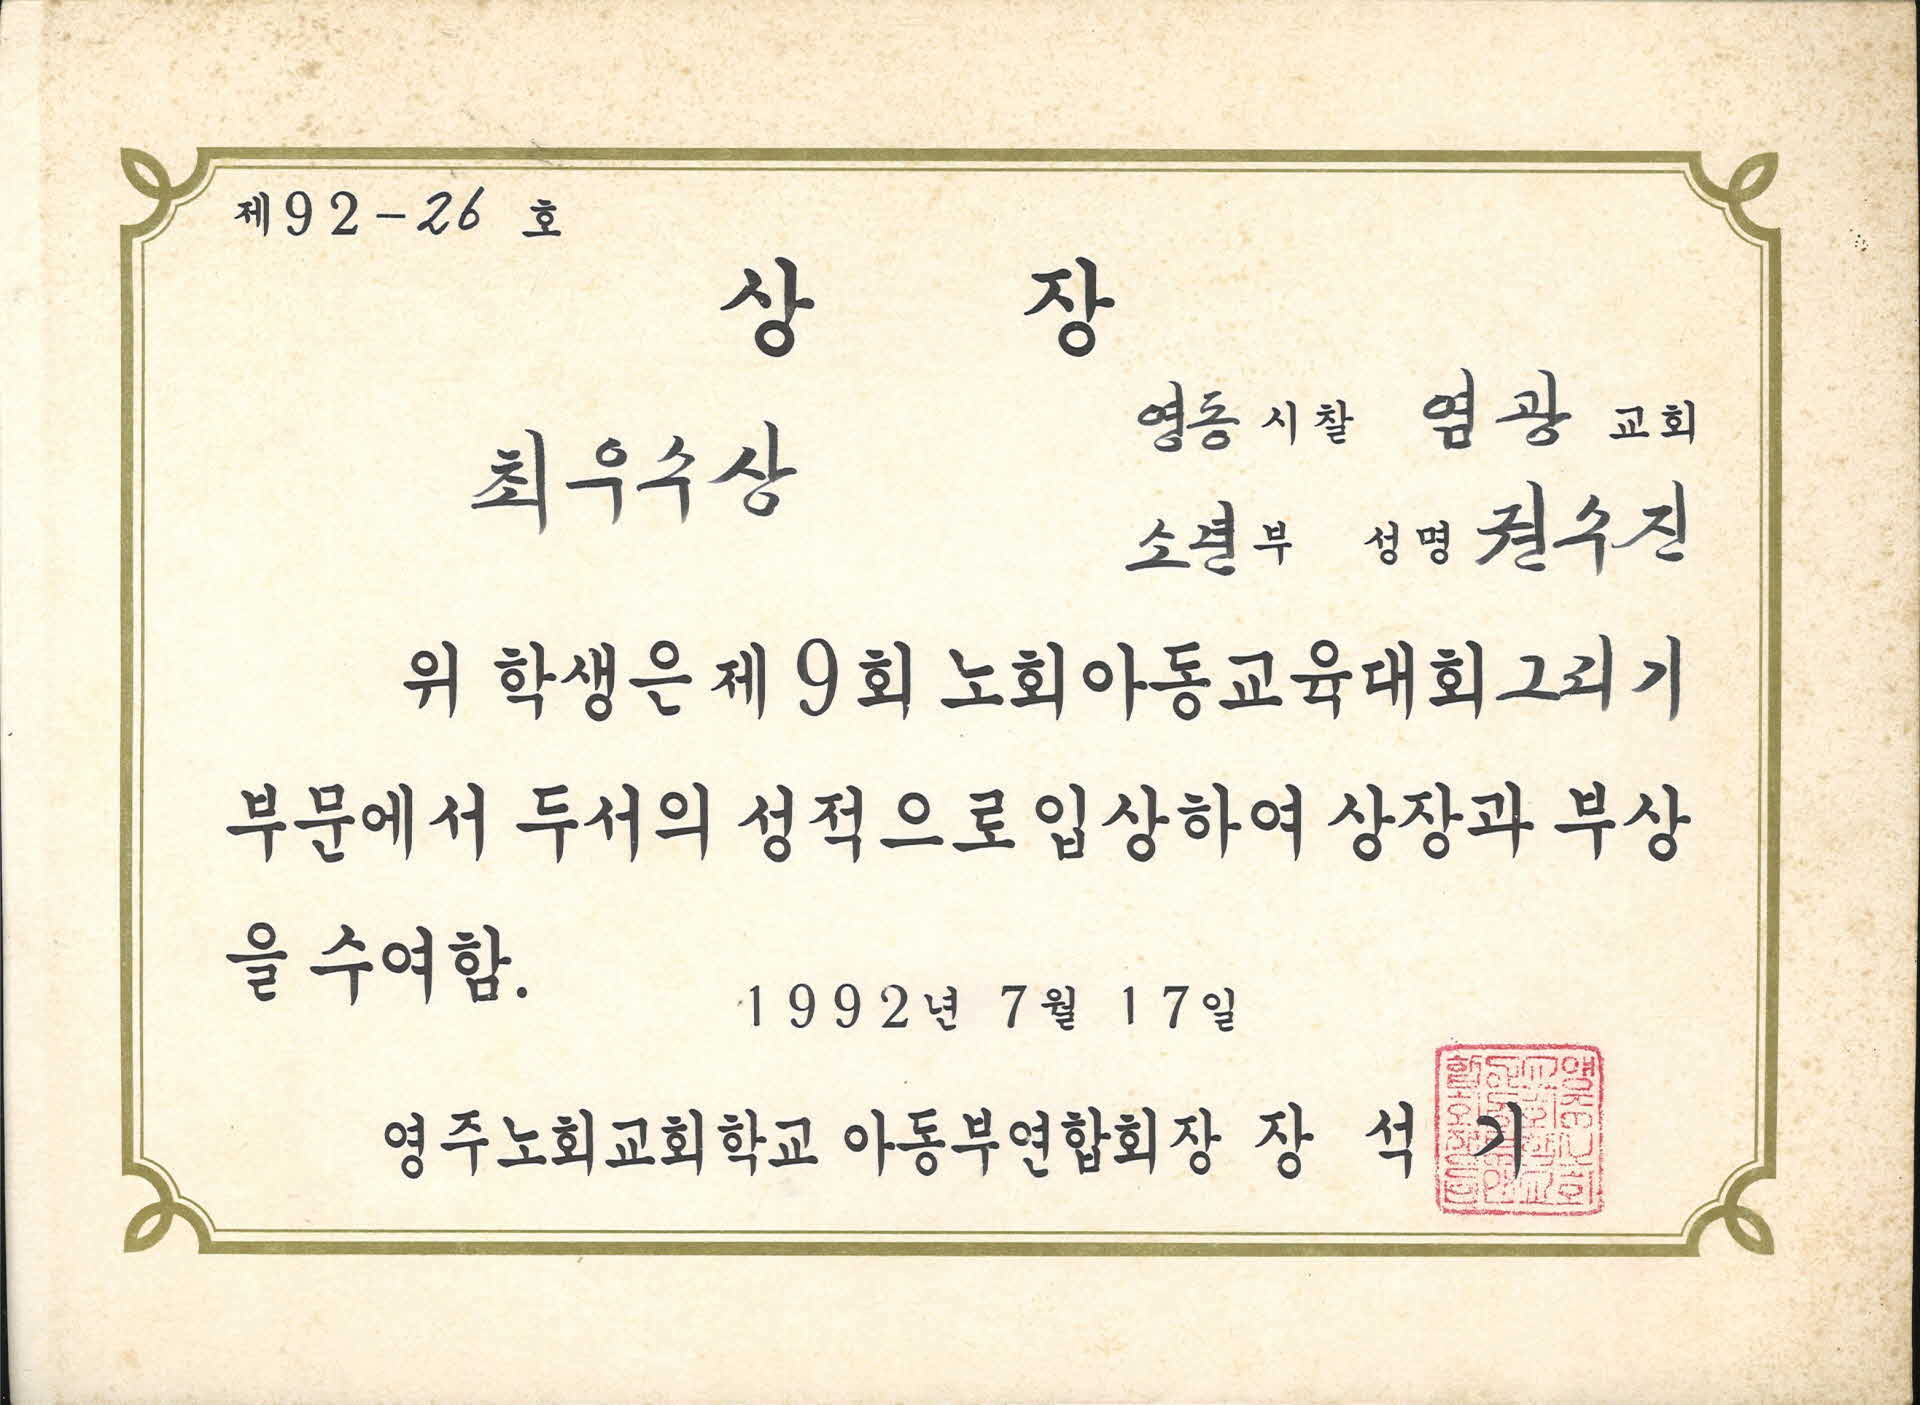 제92-26 호
상 장
최우수상
영동 시찰 염광 교회
소년부 성명 권수진
위 학생은 제 9회 노회아동교육대회 그리기
부문에서 두서의 성적으로 입상하여 상장과 부상
을 수여함.
1992년 7월 17일
영주노회교회학교 아동부연합회장 장 석 기